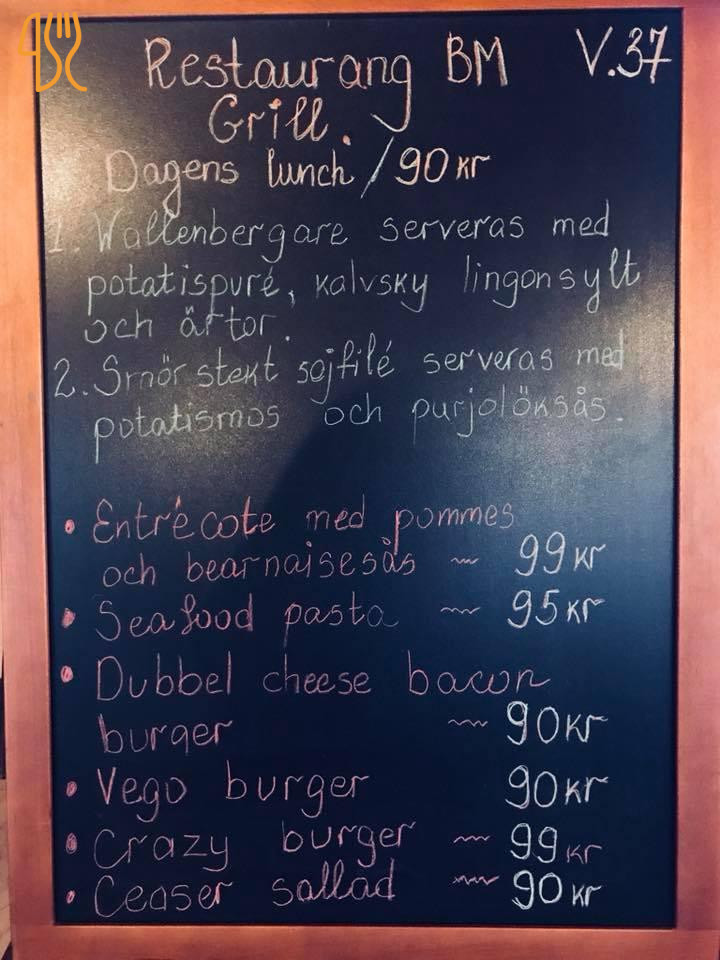 Restaurang BM V.37
Grill.
Dagens lunch / 90 kr
1. Wallenbergare serveras med
potatispuré, kalvsky lingonsylt
och ärtor.
2. Smörstekt sejfilé serveras med
potatismos och purjolöksås.
• Entrécote med pommes
och bearnaisesås ~ 99 kr
• Seafood pasta ~ 95 kr
• Dubbel cheese bacon
burger ~ 90 kr
• Vego burger 90 kr
• Crazy burger ~ 99 kr
• Ceaser sallad ~ 90 kr